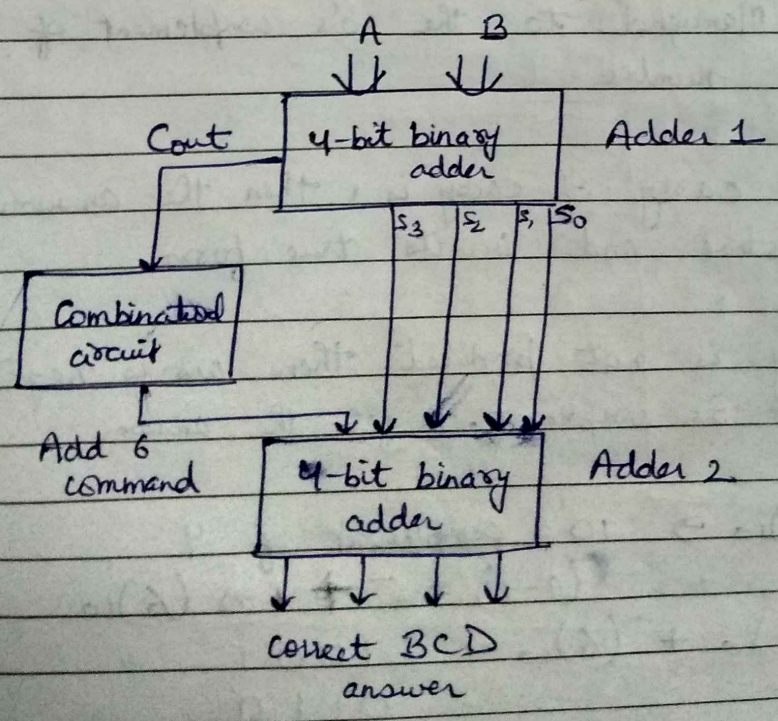 A B
Cout
4-bit binary
adder
Adder 1
S3 S2 S1 S0
Combinational
circuit
Add 6
command
4-bit binary
adder
Adder 2
correct BCD
answer